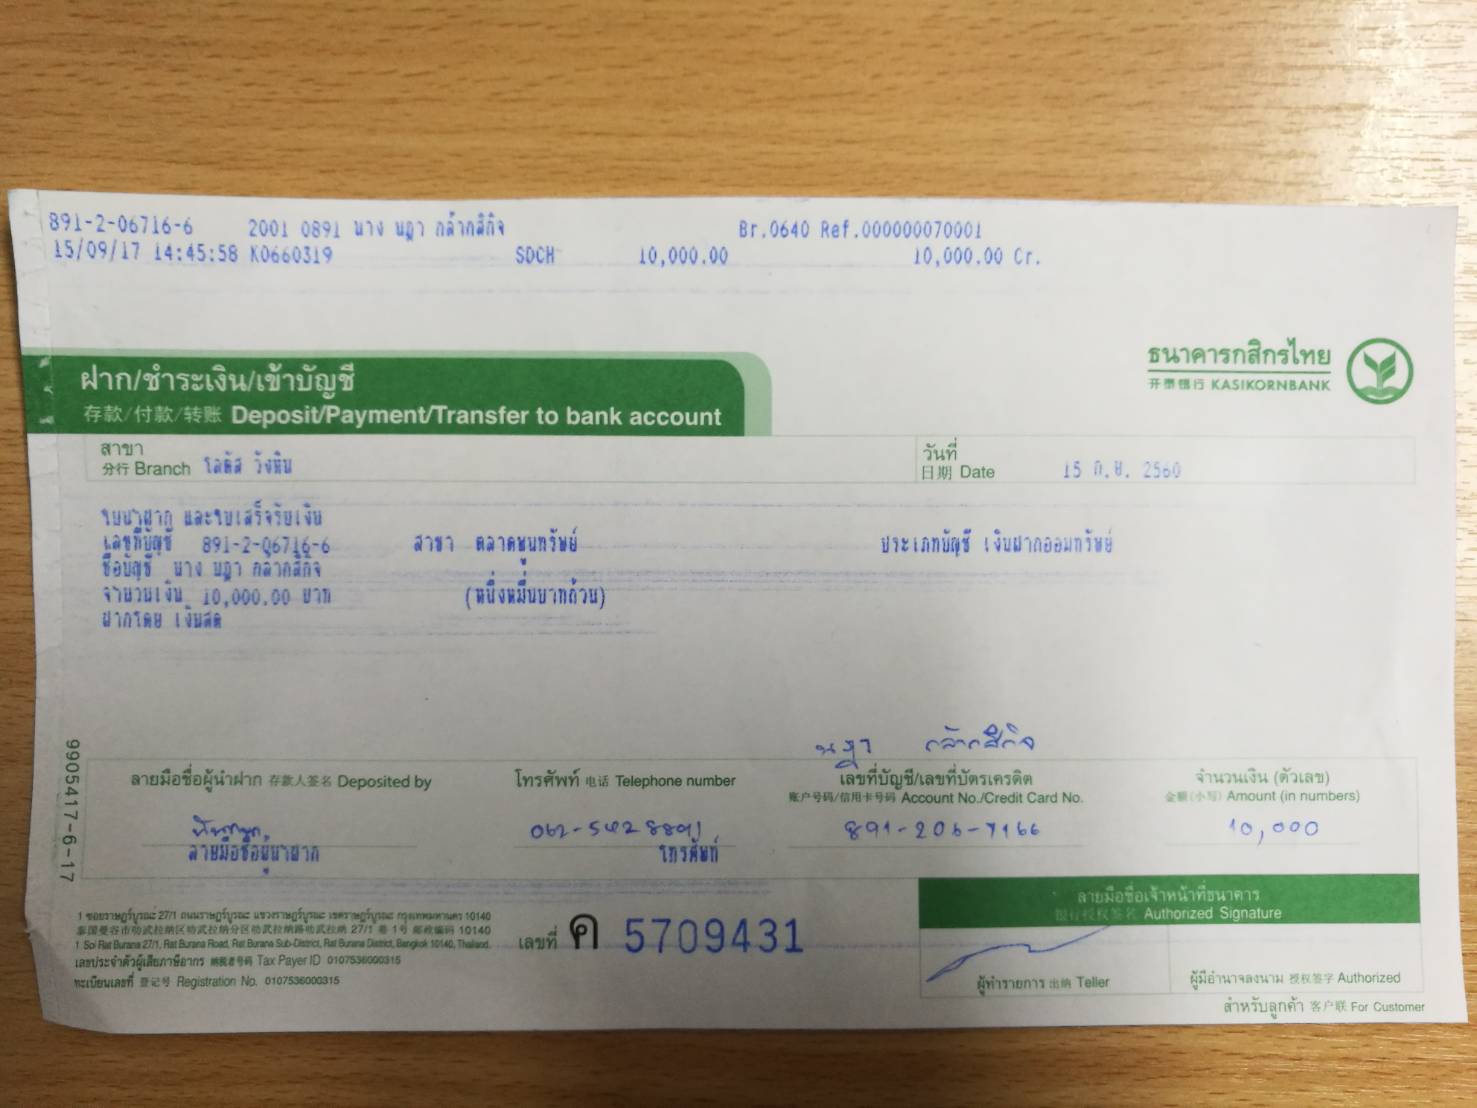 891-2-06716-6 2001 0891 นาง นฎา กล้ากสิกิจ Br.0640 Ref.000000070001
15/09/17 14:45:58 K0660319 SDCH 10,000.00 10,000.00 Cr.
ธนาคารกสิกรไทย
开泰银行 KASIKORNBANK
ฝาก/ชำระเงิน/เข้าบัญชี
存款/付款/转账 Deposit/Payment/Transfer to bank account
สาขา
分行 Branch โลตัส วังหิน
วันที่
日期 Date 15 ก.ย. 2560
ใบนำฝาก และใบเสร็จรับเงิน
เลขที่บัญชี 891-2-06716-6 สาขา ตลาดพูนทรัพย์ ประเภทบัญชี เงินฝากออมทรัพย์
ชื่อบัญชี นาง นฎา กล้ากสิกิจ
จำนวนเงิน 10,000.00 บาท (หนึ่งหมื่นบาทถ้วน)
ฝากโดย เงินสด
นฎา กล้ากสิกิจ
ลายมือชื่อผู้นำฝาก 存款人签名 Deposited by
โทรศัพท์ 电话 Telephone number
เลขที่บัญชี/เลขที่บัตรเครดิต
账户号码/信用卡号码 Account No./Credit Card No.
จำนวนเงิน (ตัวเลข)
金额(小写) Amount (in numbers)
891-206-7166
10,000
ลายมือชื่อผู้นำฝาก โทรศัพท์
9905417-6-17
1 ซอยราษฎร์บูรณะ 27/1 ถนนราษฎร์บูรณะ แขวงราษฎร์บูรณะ เขตราษฎร์บูรณะ กรุงเทพมหานคร 10140
泰国曼谷市叻武拉纳区叻武拉纳分区叻武拉纳路叻武拉纳 27/1 巷 1 号 邮政编码 10140
1 Soi Rat Burana 27/1, Rat Burana Road, Rat Burana Sub-District, Rat Burana District, Bangkok 10140, Thailand.
เลขประจำตัวผู้เสียภาษีอากร 纳税者号码 Tax Payer ID 0107536000315
ทะเบียนเลขที่ 登记号 Registration No. 0107536000315
เลขที่ ค 5709431
ลายมือชื่อเจ้าหน้าที่ธนาคาร
银行授权签名 Authorized Signature
ผู้ทำรายการ 出纳 Teller
ผู้มีอำนาจลงนาม 授权签字 Authorized
สำหรับลูกค้า 客户联 For Customer